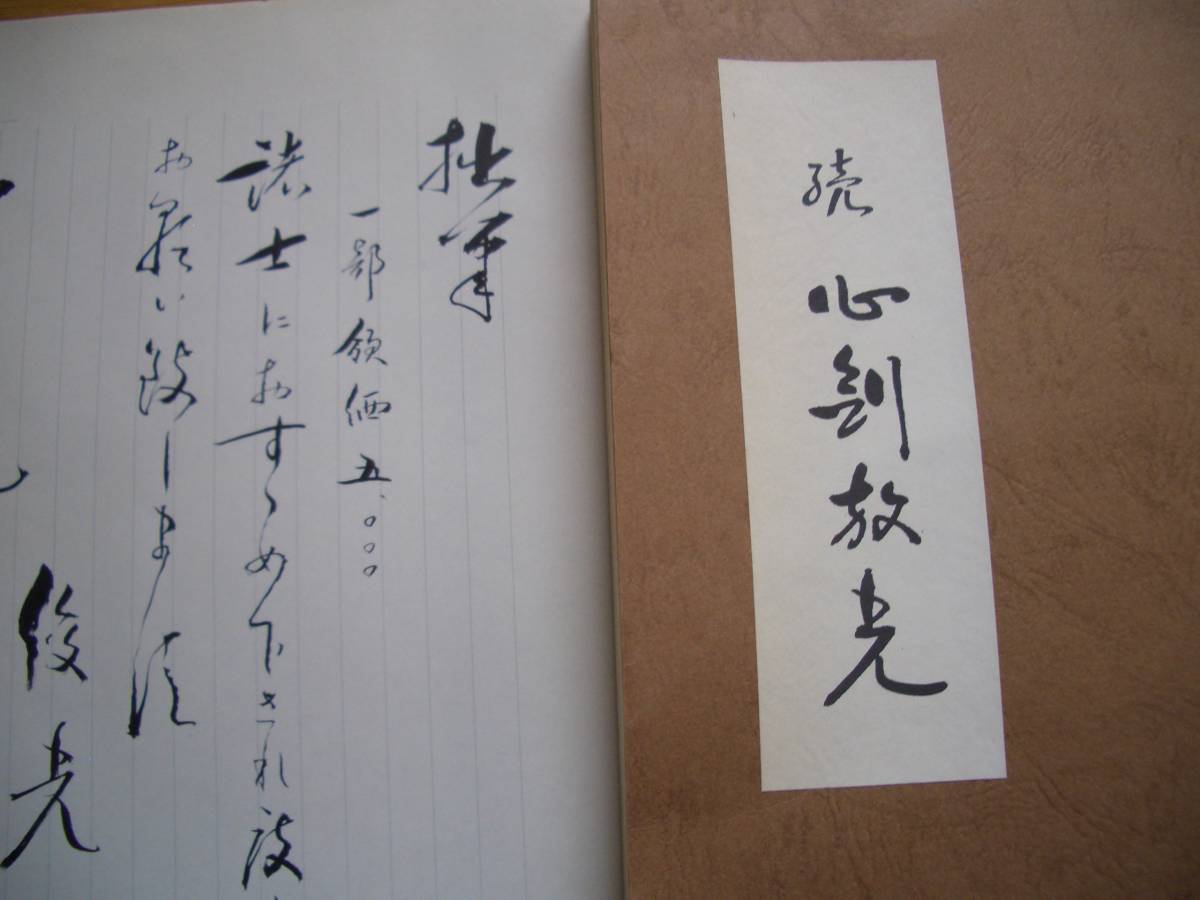 続 心剣放光
拙筆
一部領価五、〇〇〇
諸士におすゝめ下され度
お願い致します
俊光